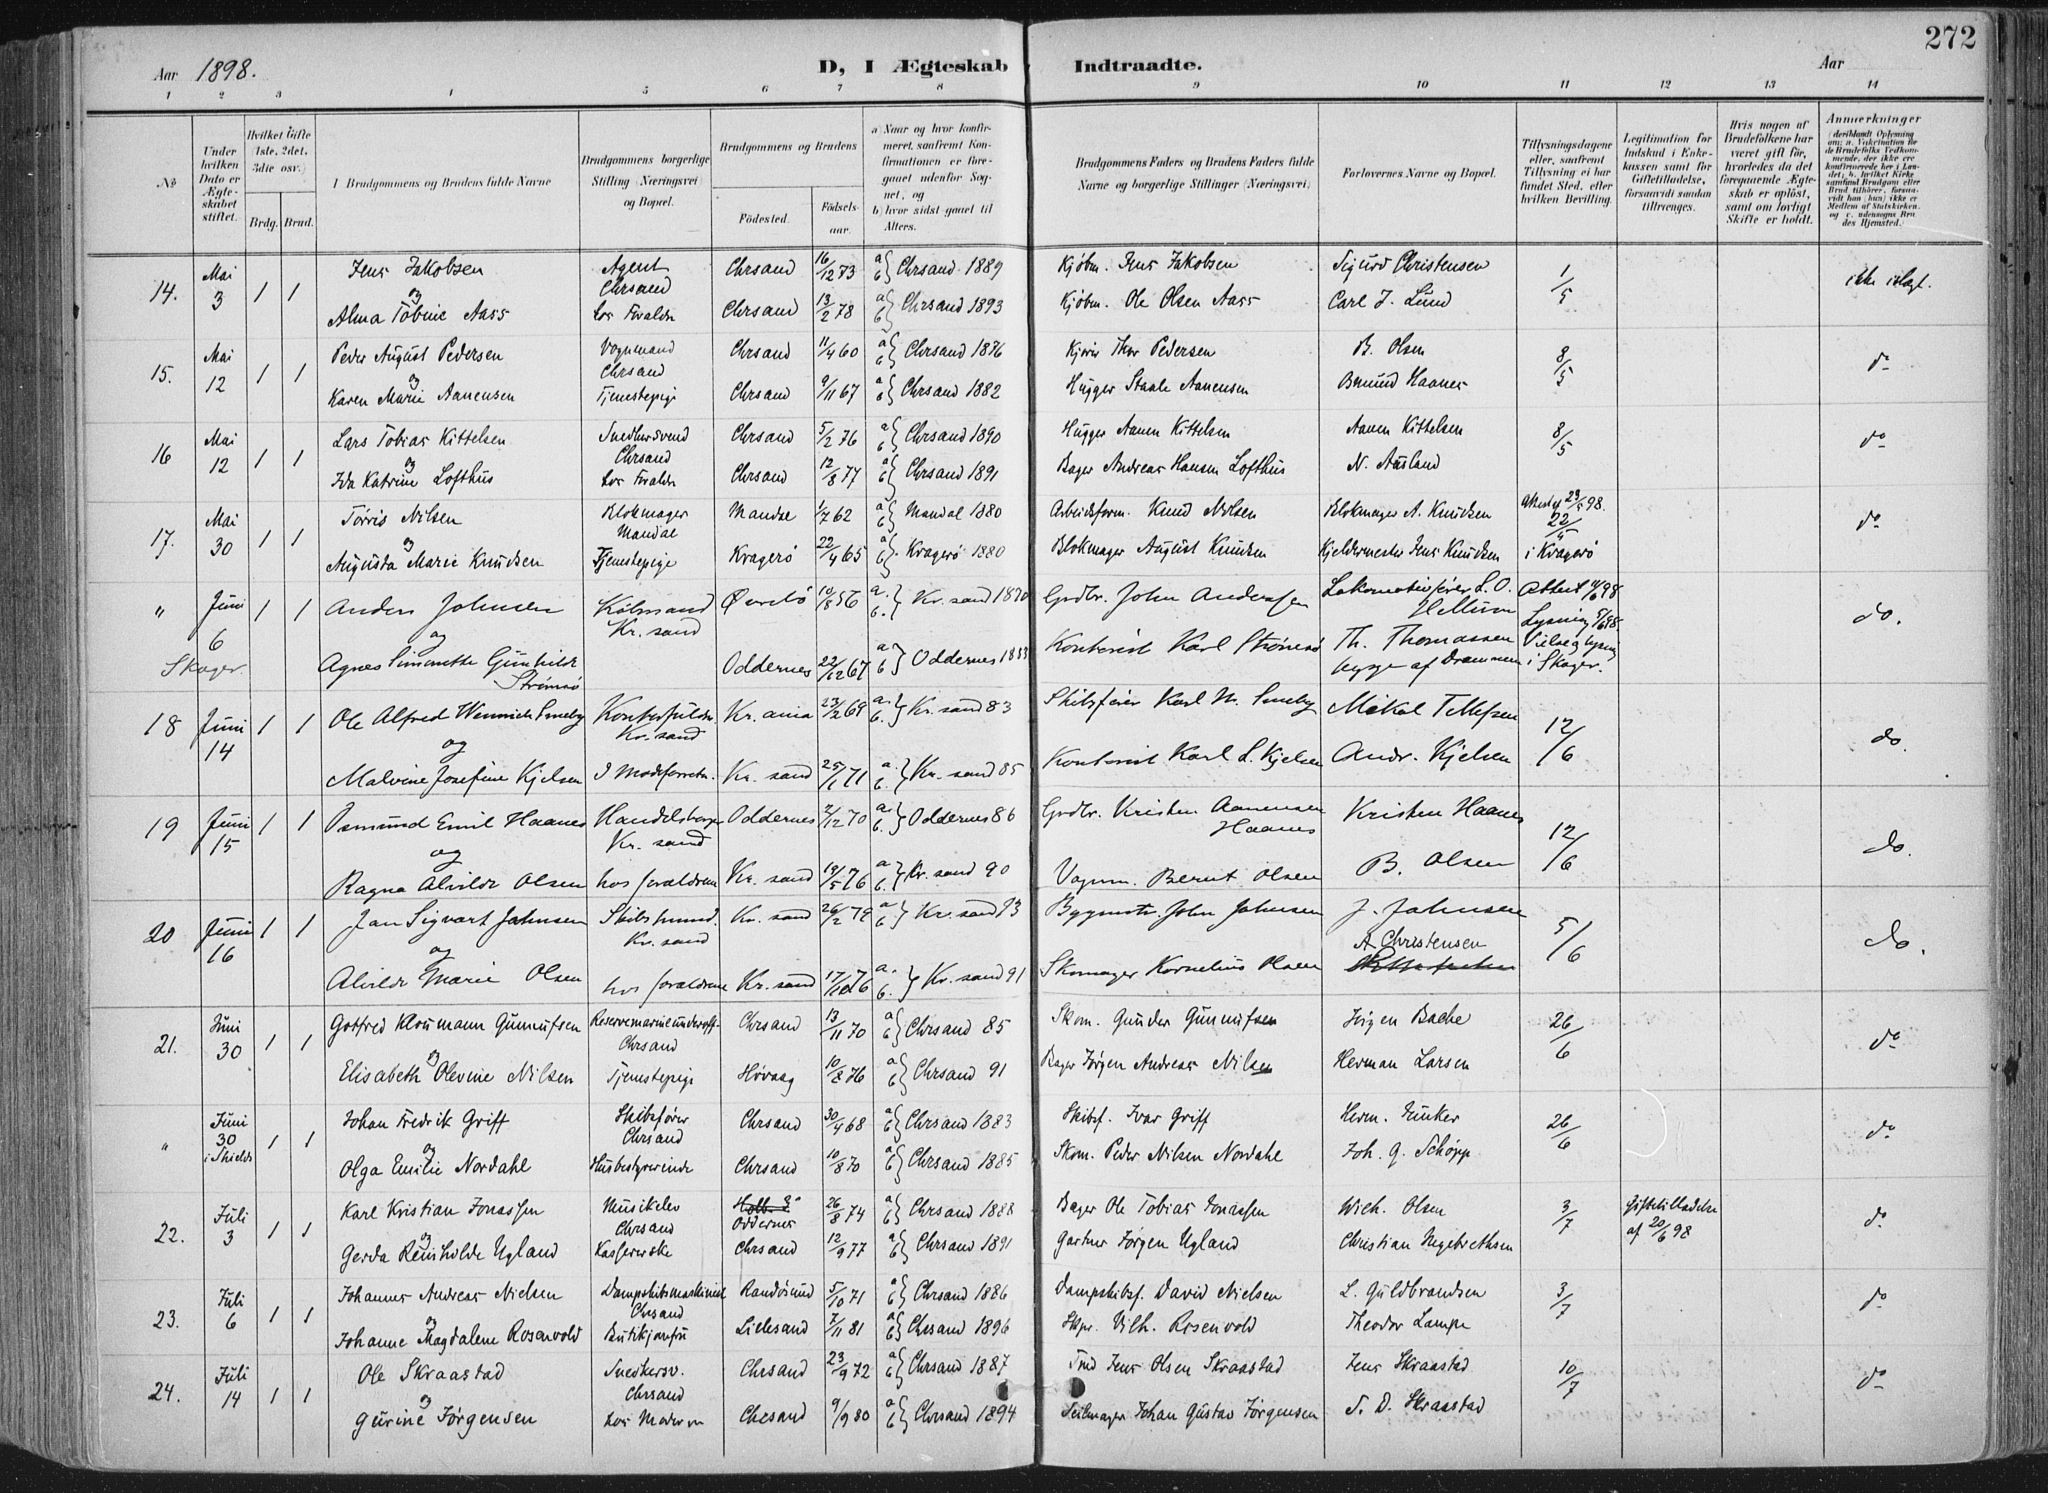 272
Aar 1898.
D, I Ægteskab Indtraadte.
Aar
1 2 3 4 5 6 7 8 9 10 11 12 13 14
No
Under hvilken Dato er Ægteskabet stiftet.
Hvilket Gifte (1ste, 2det, 3die osv.)
Brdg. Brud.
Brudgommens og Brudens fulde Navne
Brudgommens borgerlige Stilling (Næringsvei) og Bopæl.
Brudgommens og Brudens
Fødested.
Fødselsaar.
a) Naar og hvor konfirmeret, saafremt Konfirmationen er foregaaet udenfor Sognet, og
b) hvor sidst gaaet til Alters.
Brudgommens Faders og Brudens Faders fulde Navne og borgerlige Stillinger (Næringsvei)
Forlovernes Navne og Bopæl.
Tillysningsdagene eller, saafremt Tillysning ei har fundet Sted, efter hvilken Bevilling.
Legitimation for Indskud i Enkekassen samt for Giftetilladelse, forsaavidt saadan tiltrænges.
Hvis nogen af Brudefolkene har været gift før, hvorledes da det foregaaende Ægteskab er opløst, samt om lovligt Skifte er holdt.
Anmerkninger
14. Mai 3 1 1 Jens Jakobsen Agent Chrsand Chrsand 16/12 73 a b Chrsand 1889 Kjøbm. Jens Jakobsen Sigurd Christensen 1/5 ikke islagt.
og Alma Tobine Aass hos Foraldr Chrsand 13/2 78 a b Chrsand 1893 Kjøbm. Ole Olsen Aass Carl J. Lund
15. Mai 12 1 1 Peder August Pedersen Vognmand Chrsand Chrsand 11/4 60 a b Chrsand 1876 Thor Pedersen B. Olsen 8/5 do
og Karen Marie Aanensen Tjenestepige Chrsand 9/11 67 a b Chrsand 1882 Hugger Staale Aanensen Osmund Haanes
16 Mai 12 1 1 Lars Tobias Kittelsen Snedkersvend Chrsand Chrsand 5/2 76 a b Chrsand 1890 Hugger Aanen Kittelsen Aanen Kittelsen 8/5 do
og Ida Katrine Lofthus hos Foraldr Chrsand 12/8 77 a b Chrsand 1891 Bager Andreas Hansen Lofthus N. Ausland
17. Mai 30 1 1 Tørris Nilsen Blokmager Mandal Mandal 1/7 62 a b Mandal 1880 Arbeidsform. Knud Nilsen Blokmager A. Knudsen Attest af 23/5 98.
og Augusta Marie Knudsen Tjenestepige Kragerø 22/4 65 a b Kragerø 1880 Blokmager August Knudsen Kjeldermester Jens Knudsen 22/5 i Kragerø do
" Juni 6 Skoger. 1 1 Anders Johnsen Kr. sand Øvrebø 10/8 56 a. b. Kr. sand 1870 Grdbr. John Andersen Lokomotivfører L. O. Hellum Attest 11/6 98. Lysning 5/6 98. do.
og Agnes Simonette Gunhilde Strømsø Oddernes 22/12 67 a b Oddernes 1883 Kontorist Karl Strømsø Th. Thomassen begge af Drammen i Skoger.
18 Juni 14 1 1 Ole Alfred Wennich Smeby Kontorfuldm. Kr. sand Kr. ania 23/2 69 a. b. Kr. sand 83 Skibsfører Karl N. Smeby Mikal Tellefsen 12/6 do.
og Malvine Josefine Kjelsen I Modeforretn. Kr. sand 25/1 71 a. b. Kr. sand 85 Kontorist Karl L. Kjelsen Andr. Kjelsen
19 Juni 15 1 1 Osmund Emil Haanes Handelsborger Kr. sand Oddernes 2/12 70 a. b. Oddernes 86 Grdbr. Kristen Aanensen Haanes Kristen Haanes 12/6 do.
og Ragna Alvilde Olsen hos foraldrene Kr. sand 19/5 76 a. b. Kr. sand 90 Vognm. Bernt Olsen B. Olsen
20 Juni 16 1 1 Jan Sigvart Jahnsen Skibstømmd. Kr. sand Kr. sand a. b. Bygmstr. John Jahnsen J. Jahnsen 5/6 do.
og Alvilde Marie Olsen hos foraldrene Kr. sand 17/10 76 a. b. Kr. sand 91 Skomager Kornelius Olsen A Christensen
21. Juni 30 1 1 Gotfred Kloumann Gunnufsen Reservemarineunderoff. Chrsand Chrsand 13/11 70 a b Chrsand 85 Skom. Gunder Gunnufsen Jørgen Bache 26/6 do
og Elisabeth Olevine Nilsen Tjenestepige Høvaag 10/8 76 a b Chrsand 91 Bager Jørgen Andreas Nilsen Herman Larsen
" Juni 30 i Shields 1 1 Johan Fredrik Griff Skibsfører Chrsand Chrsand 30/4 68 a b Chrsand 1883 Skibsf. Ivar Griff Herm. Junker 26/6 do
og Olga Emilie Nordahl Husbestyrerinde Chrsand 10/8 70 a b Chrsand 1885 Skom. Peder Nilsen Nordahl Joh. G. Schøpp
22. Juli 3 1 1 Karl Kristian Jonassen Musikelev Chrsand Oddernes 26/8 74 a b Chrsand 1888 Bager Ole Tobias Jonassen Wilh. Olsen 3/7 Giftetilladelse af 20/6 98 do
og Gerda Reinholde Ugland Kassererske Chrsand 12/9 77 a b Chrsand 1891 Gartner Jørgen Ugland Christian Ingebrethsen
23. Juli 6 1 1 Johannes Andreas Nielsen Dampskibsmaskinist Chrsand Randøsund 5/10 71 a b Chrsand 1886 Dampskibsf. David Nielsen L. Guldbrandsen 3/7 do
og Johanne Magdalene Rosenvold Butikjomfru Lillesand 7/11 81 a b Chrsand 1896 Skpr. Vilh. Rosenvold Theodor Lampe
24. Juli 14 1 1 Ole Skraastad Snedkersv. Chrsand Chrsand 23/9 72 a b Chrsand 1887 Jens Olsen Skraastad Jens Skraastad 10/7 do
og Gurine Jørgensen hos Moderen Chrsand 9/9 80 a b Chrsand 1894 Seilmager Johan Gustav Jørgensen S. D. Skraastad